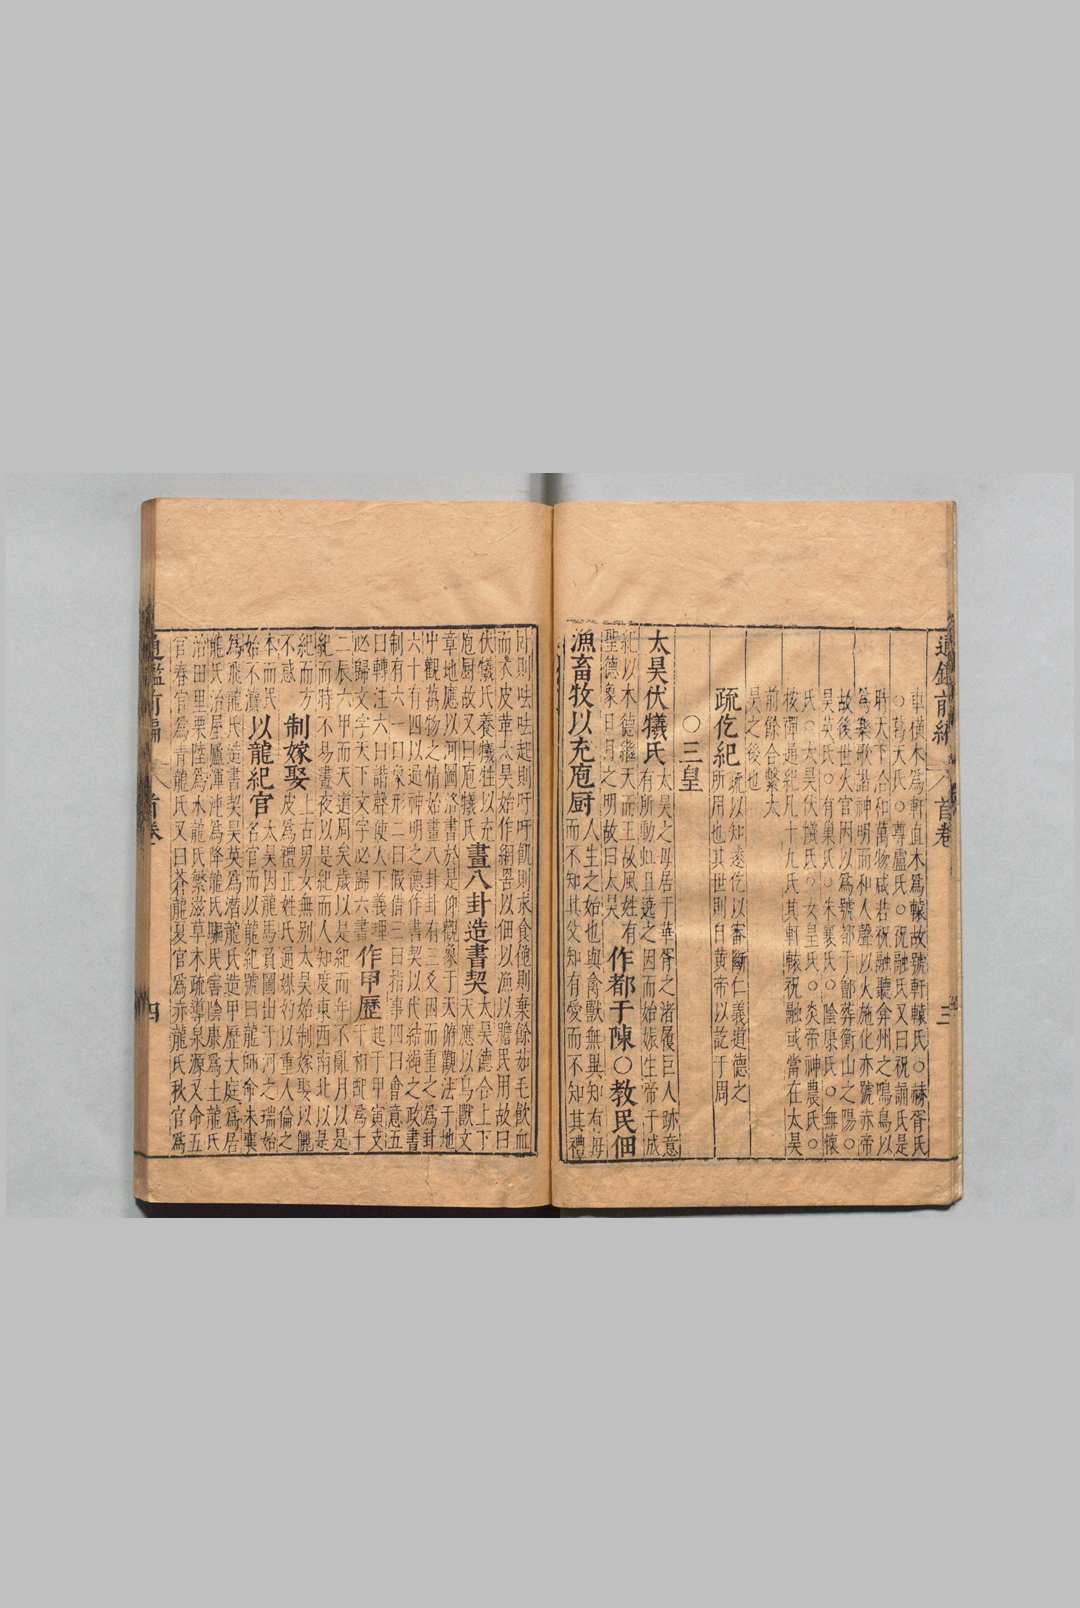 通鑑前編 首卷 三
車橫木爲軒直木爲轅故號軒轅氏○赫胥氏
○葛天氏○尊盧氏○祝融氏又曰祝誦氏是
時天下洽和萬物咸若祝融聽弇州之鳴鳥以
爲樂歌諧神明而和人聲以火施化亦號赤帝
故後世火官因以爲號都于鄶葬衡山之陽○
昊英氏○有巢氏○朱襄氏○陰康氏○無懷
氏○太昊伏犧氏○女皇氏○炎帝神農氏○
按禪通紀凡十九氏其軒轅祝融或當在太昊
前餘合繫太
昊之後也
疏仡紀
疏以知遠仡以審斷仁義道德之
所用也其世則自黃帝以訖于周
○三皇
太昊伏犧氏
太昊之母居于華胥之渚履巨人跡意
有所動虹且遶之因而始娠生帝于成
紀以木德繼天而王故風姓有
聖德象日月之明故曰太昊
作都于陳○教民佃
漁畜牧以充庖厨
人生之始也與禽獸無異知有母
而不知其父知有愛而不知其禮
臥則呿呿起則吁吁飢則求食飽則棄餘茹毛飲血
而衣皮革太昊始作網罟以佃以漁以贍民用故曰
伏犧氏養犧牲以充
庖厨故又曰庖犧氏
畫八卦造書契
太昊德合上下
天應以鳥獸文
章地應以河圖洛書於是仰觀象于天俯觀法于地
中觀萬物之情始畫八卦卦有三爻因而重之爲卦
六十有四以通神明之德作書契以代結繩之政書
制有六一曰象形二曰假借三曰指事四曰會意五
曰轉注六曰諧聲使人下義理
必歸文字天下文字必歸六書
作甲歷
起于甲寅支
干相配爲十
二辰六甲而天道周矣歲以是紀而年不亂月以是
紀而時不易晝夜以是紀而人知度東西南北以是
紀而方
不惑
制嫁娶
上古男女無別太昊始制嫁娶以儷
皮爲禮正姓氏通媒妁以重人倫之
本而民
始不瀆
以龍紀官
太昊因龍馬負圖出于河之瑞始
名官而以龍紀號曰龍師命朱襄
爲飛龍氏造書契昊英爲潛龍氏造甲歷大庭爲居
龍氏治屋廬渾沌爲降龍氏驅民害陰康爲土龍氏
治田里栗陸爲水龍氏繁滋草木疏導泉源又命五
官春官爲青龍氏又曰蒼龍夏官爲赤龍氏秋官爲
通鑑前編 首卷 四